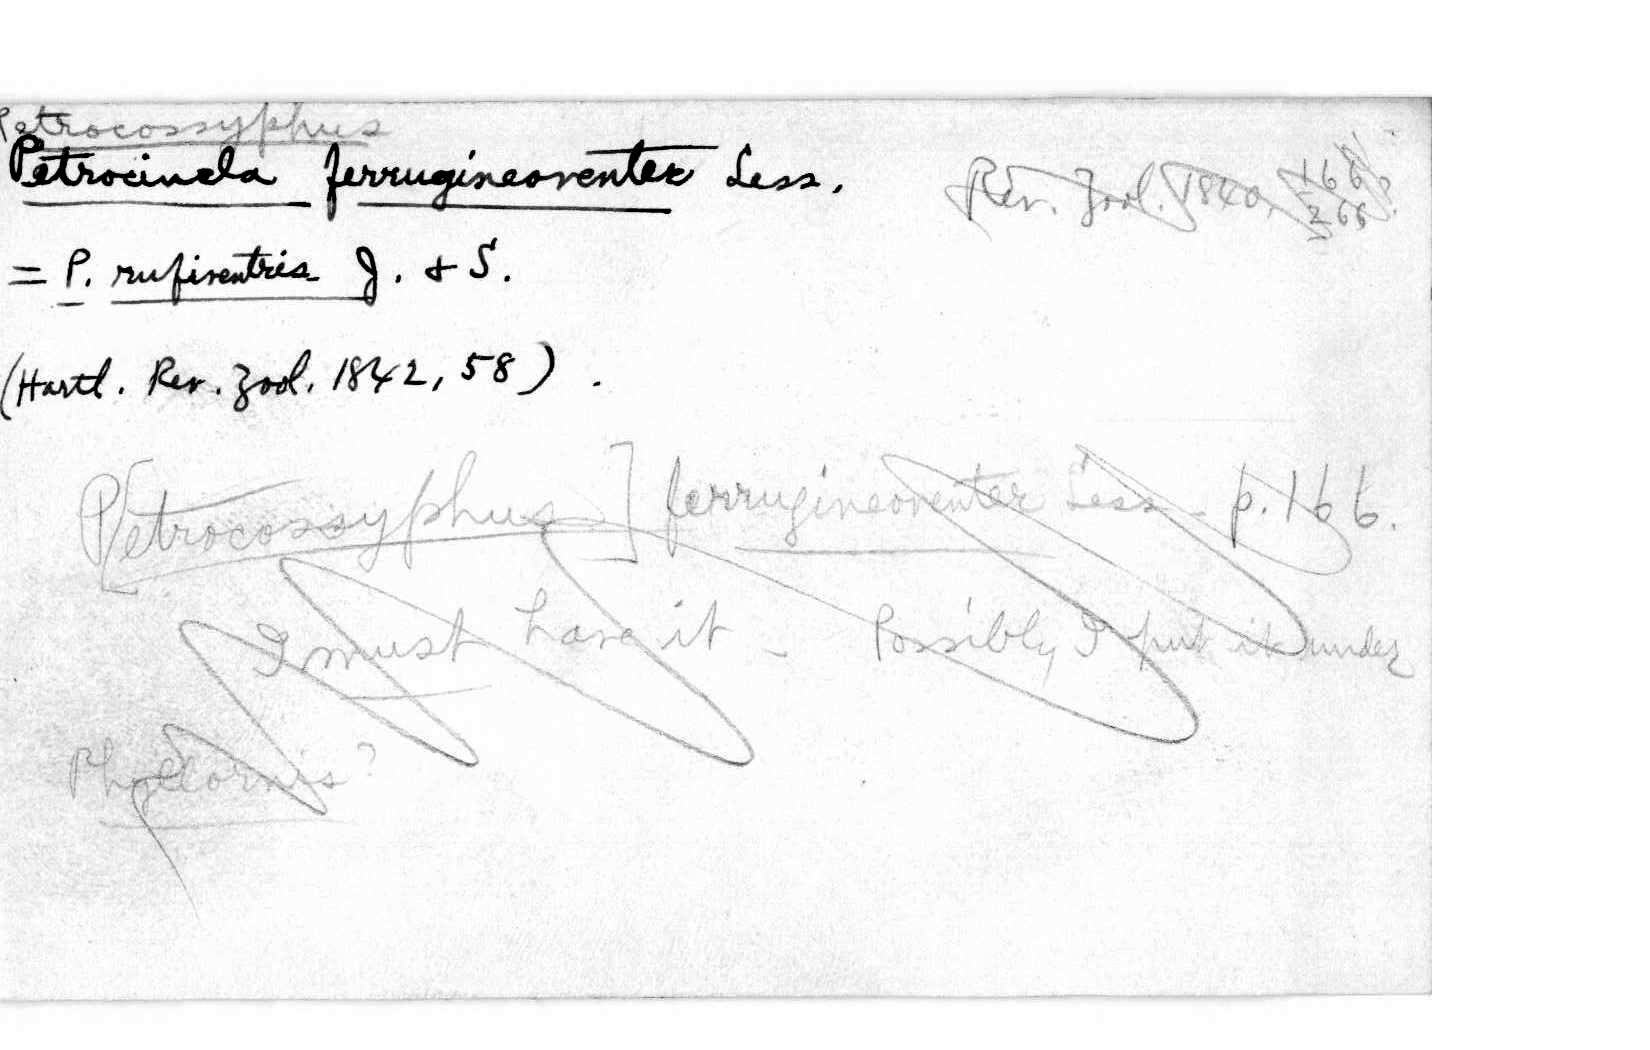 Petrocossyphus
Petrocincla ferrugineoventer Less. Rev. Zool. 1840, 166
266
= P. rufiventris J. & S.
(Hartl. Rev. Zool. 1842, 58).
P[etrocossyphus] ferrugineoventer Less. p. 166.
I must have it - Possibly I put it under
Phyllornis?